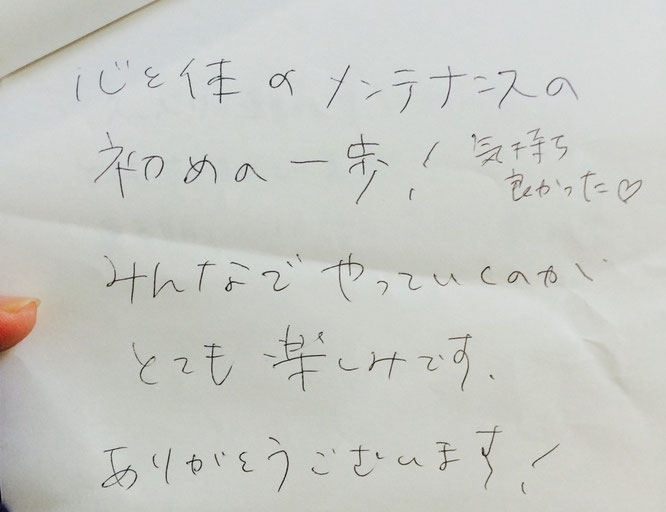 心と体のメンテナンスの
初めの一歩！
気持ち
良かった♡
みんなでやっていくのが
とても楽しみです.
ありがとうございます！